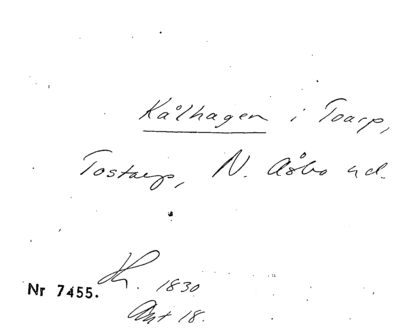 Kålhagen i Toarp,
Tostarp, N. Åsbo hd.
Nr 7455. Hr. 1830
Akt 18.